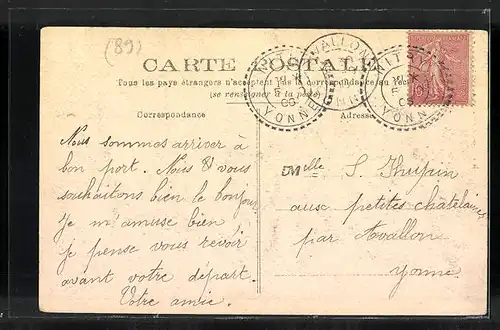 (89)
CARTE POSTALE
Tous les pays étrangers n'acceptent pas la correspondance au recto
(se renseigner à la poste)
Correspondance
Adresse
VALLON
KITRY
YONNE
YONNE
Nous sommes arriver à
bon port. Nous &
vous
souhaitons bien le bonjour
Je m'amuse bien
je pense vous revoir
avant votre départ.
Votre amie.
Melle S.
aux petites châtelaines
par Avallon
Yonne